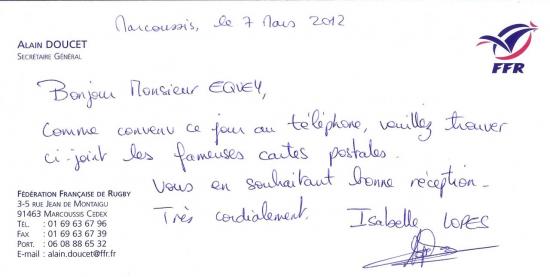 Marcoussis, le 7 Mars 2012
ALAIN DOUCET
SECRÉTAIRE GÉNÉRAL
FFR
Bonjour Monsieur EQUEY,
Comme convenu ce jour au téléphone, veuillez trouver
ci-joint les fameuses cartes postales.
Vous en souhaitant bonne réception.
Très cordialement. Isabelle LOPES
FÉDÉRATION FRANÇAISE DE RUGBY
3-5 RUE JEAN DE MONTAIGU
91463 MARCOUSSIS CEDEX
TÉL. : 01 69 63 67 96
FAX : 01 69 63 67 39
PORT. : 06 08 88 65 32
E-mail : alain.doucet@ffr.fr